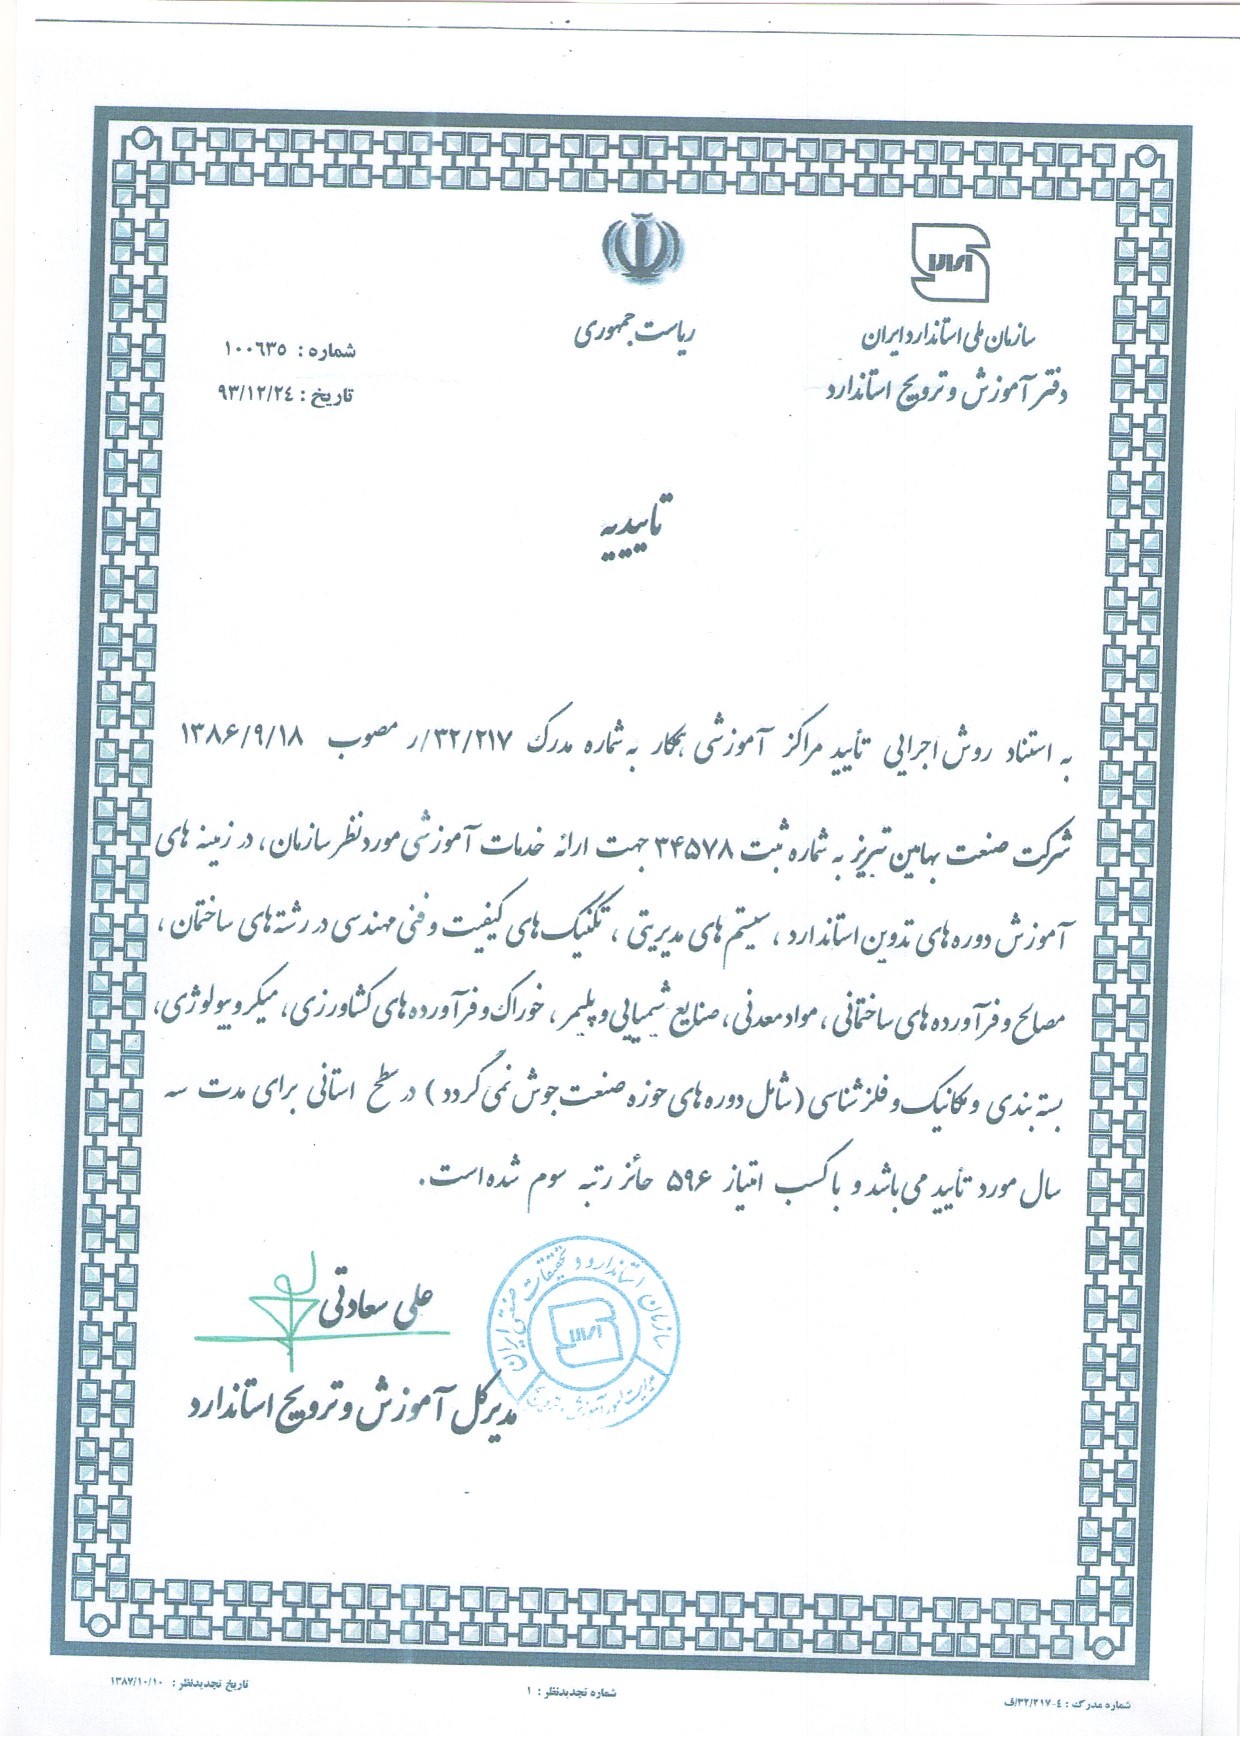 سازمان ملی استاندارد ایران
دفتر آموزش و ترویج استاندارد
ریاست جمهوری
شماره : ۱۰۰٦۳۵
تاریخ : ۹۳/۱۲/۲٤
تاییدیه
به استناد روش اجرایی تأیید مراکز آموزشی همکار به شماره مدرک ۳۲/۲۱۷/ر مصوب ۱۳۸۶/۹/۱۸
شرکت صنعت بهامین تبریز به شماره ثبت ۳۴۵۷۸ جهت ارائه خدمات آموزشی مورد نظر سازمان، در زمینه های
آموزش دوره های تدوین استاندارد ، سیستم های مدیریتی ، تکنیک های کیفیت و فنی مهندسی در رشته های ساختمان ،
مصالح و فرآورده های ساختمانی ، مواد معدنی ، صنایع شیمیایی و پلیمر ، خوراک و فرآورده های کشاورزی ، میکروبیولوژی،
بسته بندی و مکانیک و فلزشناسی (شامل دوره های حوزه صنعت جوش نمی گردد ) در سطح استانی برای مدت سه
سال مورد تأیید می باشد و با کسب امتیاز ۵۹۶ حائز رتبه سوم شده است.
علی سعادتی
مدیرکل آموزش و ترویج استاندارد
سازمان استاندارد و تحقیقات صنعتی ایران
شماره مدرک : ٤-۳۲/۲۱۷/ف
شماره تجدیدنظر : ۱
تاریخ تجدیدنظر : ۱۳۸۷/۱۰/۱۰